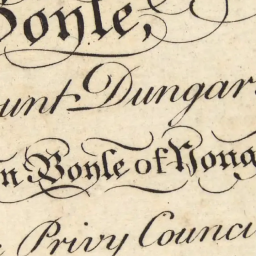 Boyle,
unt Dungar
n Boyle of Youg
Privy Counci